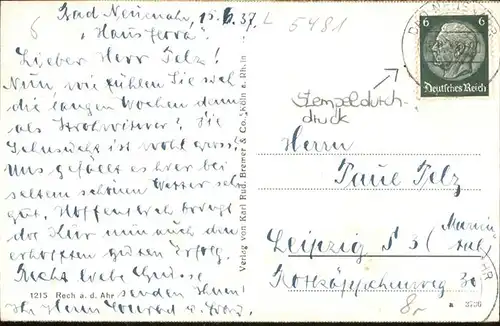 Bad Neuenahr, 15.6.37.
5481
"Haus Jerra"
Lieber Herr Telz!
Nun, wie fühlen Sie sich
die langen Wochen denn
als Strohwitwer? Die
Sehnsucht ist wohl gross!
Uns gefällt es hier bei
selten schönem Wetter sehr
gut. Hoffentlich bringt
die Kur nun auch den
erhofften guten Erfolg.
Recht liebe Grüsse
senden Ihnen!
Ihr Heinz
1215 Rech a. d. Ahr
Verlag von Karl Rud. Bremer & Co., Köln a. Rhein
6 6
Deutsches Reich
Stempeldurch-
druck
Herrn
Paul Telz
Leipzig S 3 (
Rotkäppchenweg 30
8,-
a 3736